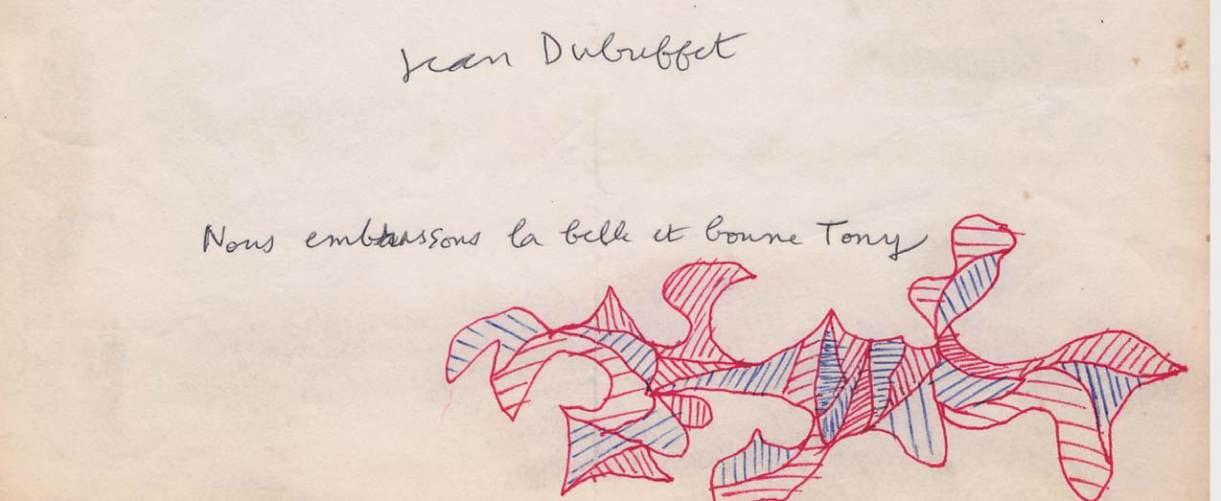 Jean Dubuffet
Nous embrassons la belle et bonne Tony